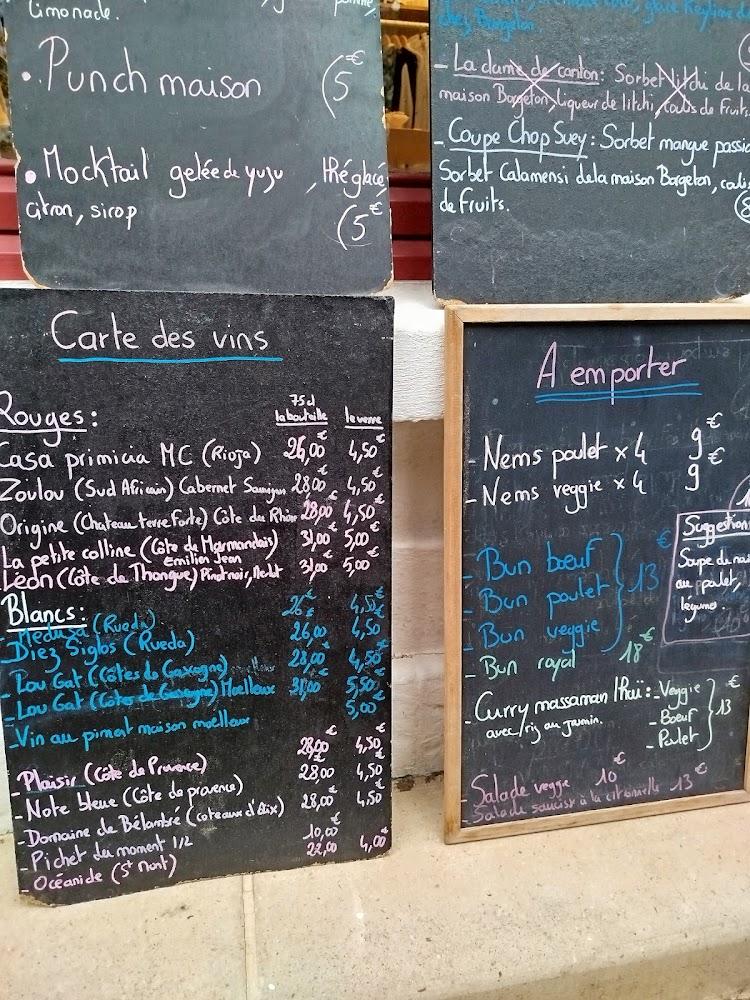 Limonade.
• Punch maison (5€
• Mocktail gelée de yuzu, thé glacé
citron, sirop (5€
chez Bargeton.
- La dame de canton: Sorbet litchi de la
maison Bargeton, Liqueur de litchi, coulis de Fruits.
- Coupe Chop Suey: Sorbet mangue passio
Sorbet Calamensi de la maison Bargeton, couli
de Fruits.
Carte des vins
75cl
la bouteille le verre
Rouges:
Casa primicia MC (Rioja) 26,00€ 4,50€
Zoulou (Sud Africain) Cabernet Sauvignon 28,00€ 4,50€
Origine (Chateau terre Forte) Côte du Rhône 28,00€ 4,50€
La petite colline (Côte de Marmandais) 31,00€ 5,00€
Emilien Jean
Léon (Côte de Thongue) Pinot noir, Merlot 31,00€ 5,00€
Blancs:
Meduza (Rueda) 26€ 4,50€
Diez Siglos (Rueda) 26,00€ 4,50
- Lou Gat (Côtes de Gascogne) 28,00€ 4,50€
- Lou Gat (Côtes de Gascogne) Moelleux 31,00€ 5,50€
- Vin au piment maison moelleux 5,00€
- Plaisir (Côte de Provence) 28,00€ 4,50€
- Note bleue (Côte de provence) 28,00€ 4,50€
- Domaine de Bélambré (coteaux d'Aix) 28,00€ 4,50€
- Pichet du moment 1/2 10,00€
- Océanide (St Mont) 22,00€ 4,00€
A emporter
- Nems poulet x 4 9€
- Nems veggie x 4 9€
- Bun bœuf
- Bun poulet } 13€
- Bun veggie
- Bun royal 18€
Suggestion
Soupe du
au poulet,
légumes.
- Curry massaman thaï: - Veggie
avec riz au jasmin. - Bœuf } 13€
- Poulet
- Salade veggie 10€
- Salade saucisse à la citronnelle 13€